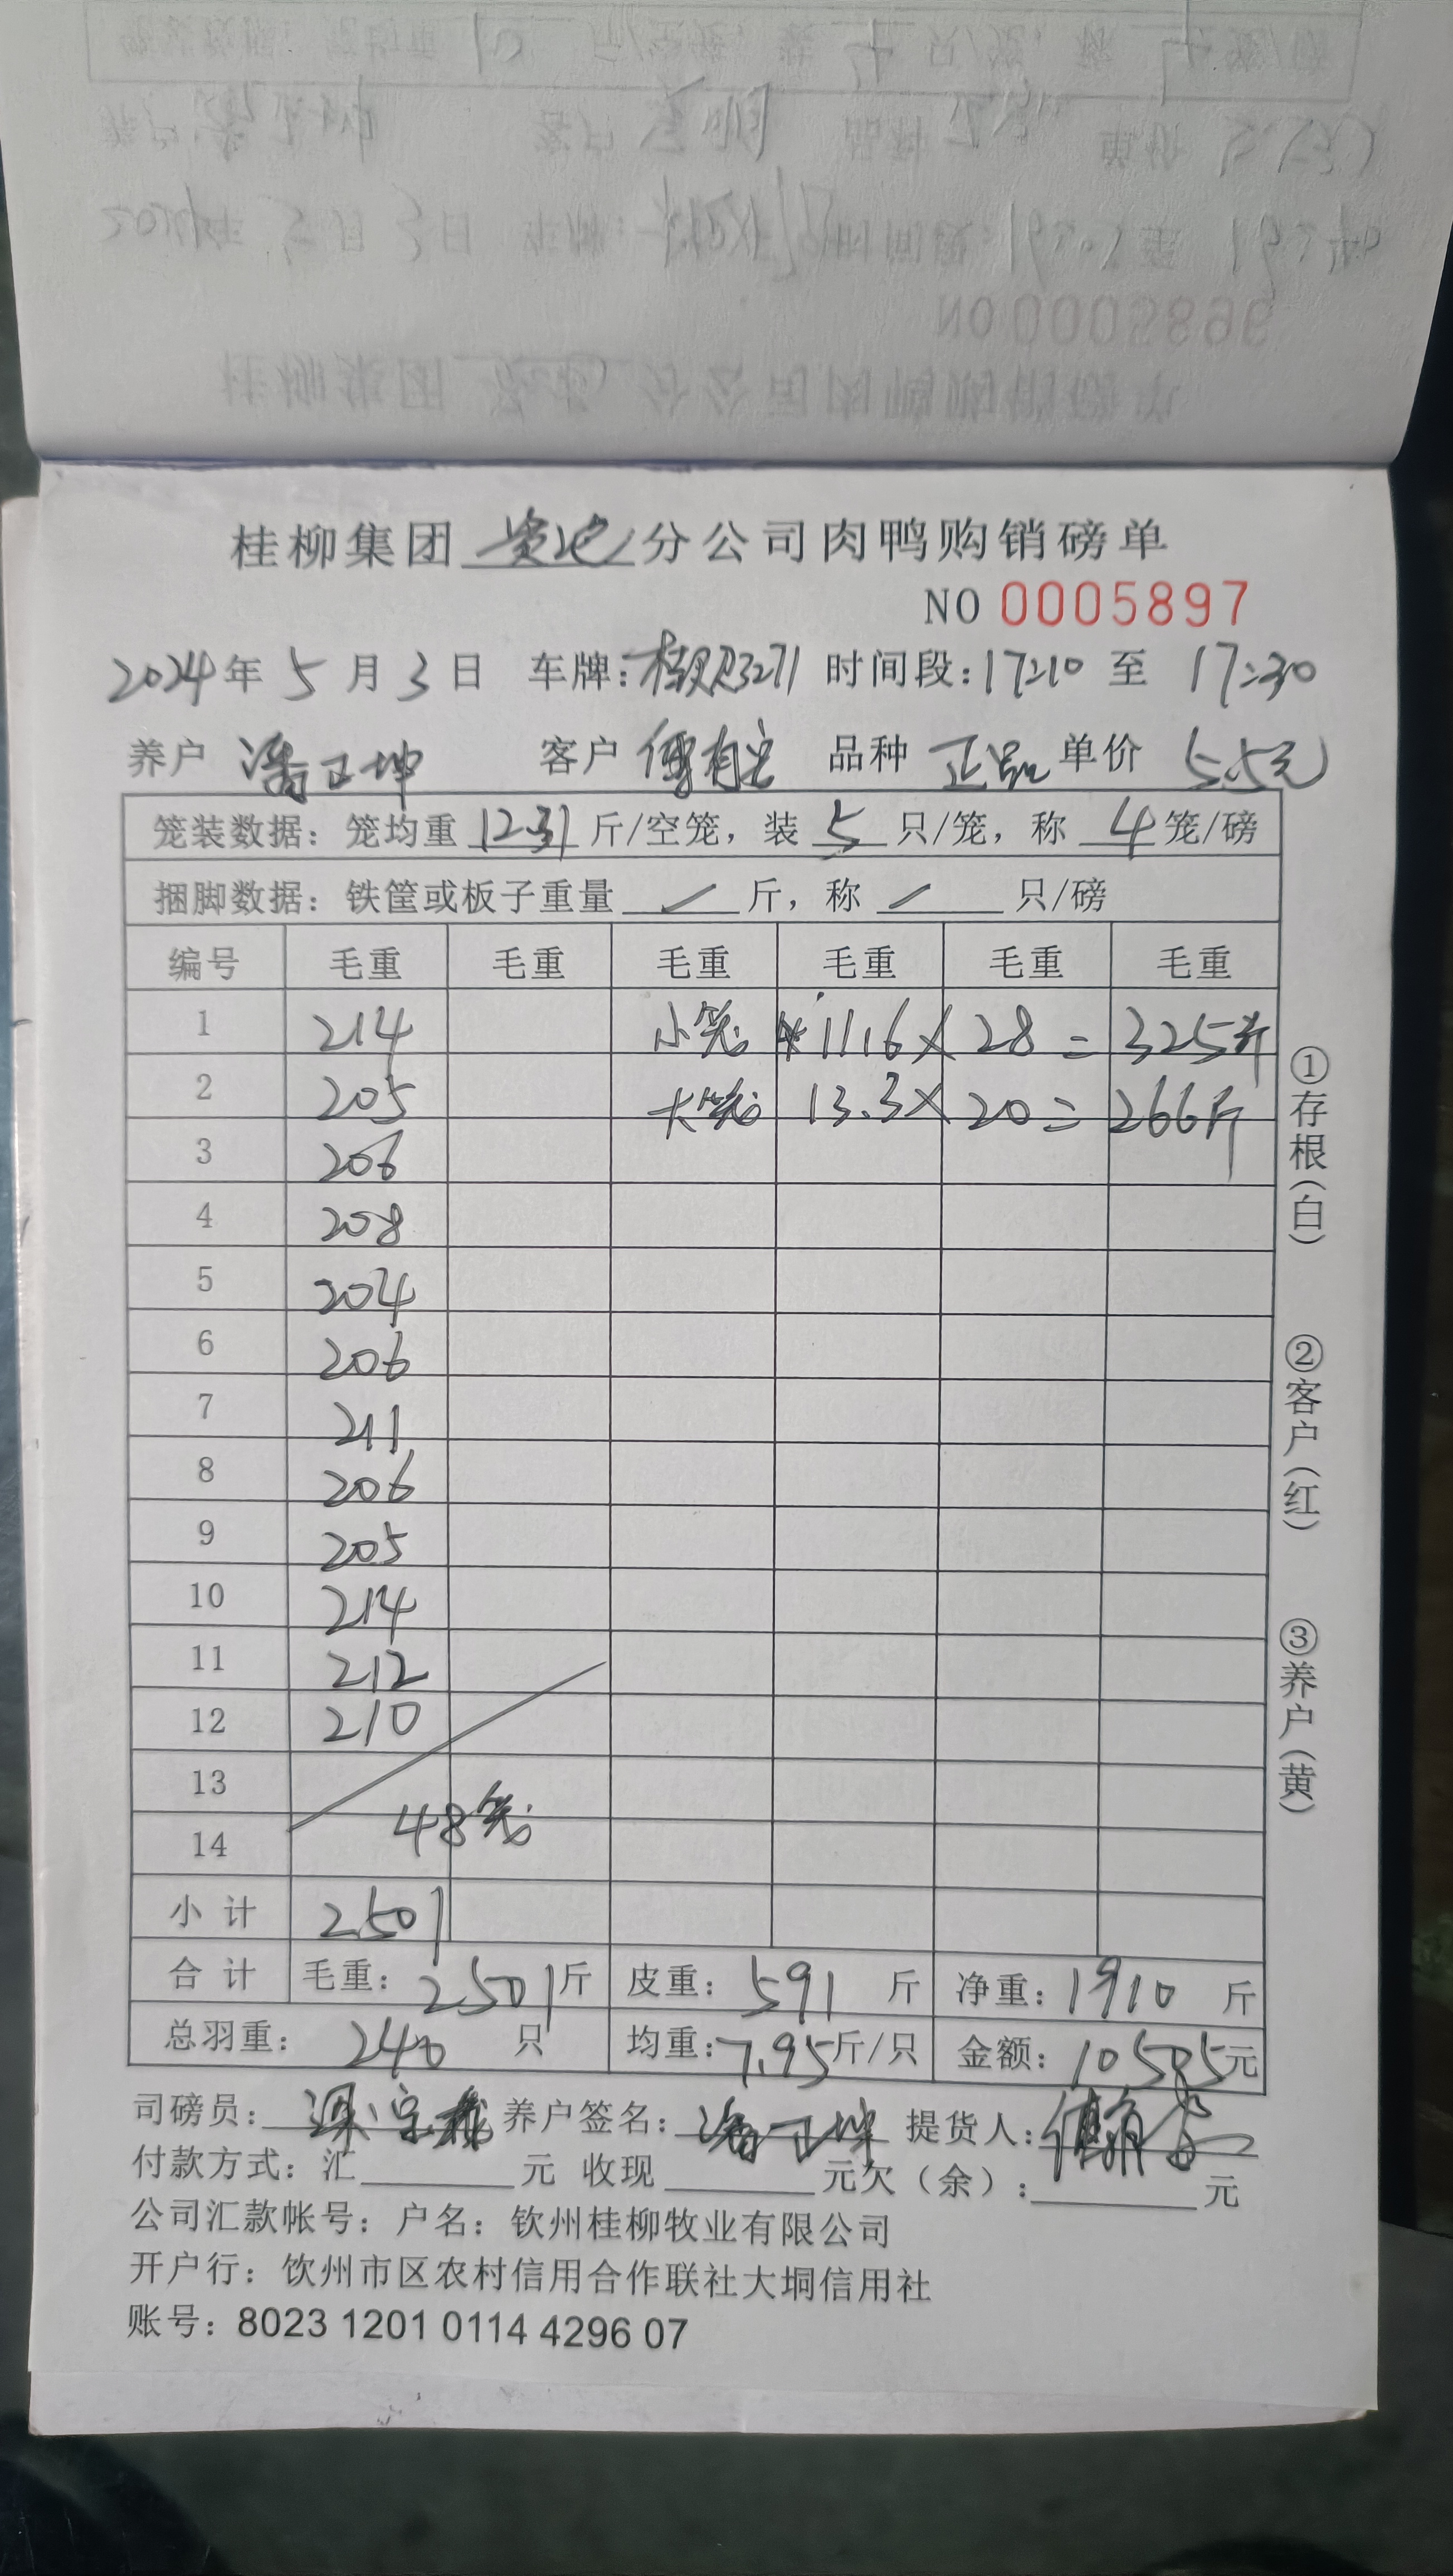 桂柳集团 贵屯 分公司肉鸭购销磅单
NO 0005897
2024年 5月 3日 车牌: 时间段:17:10 至 17:30
养户 潘正坤 客户 傅有 品种 正品 单价 5.5元
笼装数据：笼均重 12.31 斤/空笼，装 5 只/笼，称 4 笼/磅
捆脚数据：铁筐或板子重量 / 斤，称 / 只/磅
编号 毛重 毛重 毛重 毛重 毛重 毛重
1 214 小笼 11.6 × 28 = 325斤
2 205 大笼 13.3 × 20 = 266斤
3 206
4 208
5 204
6 206
7 211
8 206
9 205
10 214
11 212
12 210
13
14 48笼
小 计 2501
合 计 毛重：2501斤 皮重：591 斤 净重：1910 斤
总羽重： 240 只 均重：7.95斤/只 金额：10505元
司磅员： 养户签名：潘正坤 提货人：傅有
付款方式：汇 元 收现 元欠（余）： 元
公司汇款帐号：户名：钦州桂柳牧业有限公司
开户行：饮州市区农村信用合作联社大垌信用社
账号：8023 1201 0114 4296 07
①存根（白）
②客户（红）
③养户（黄）